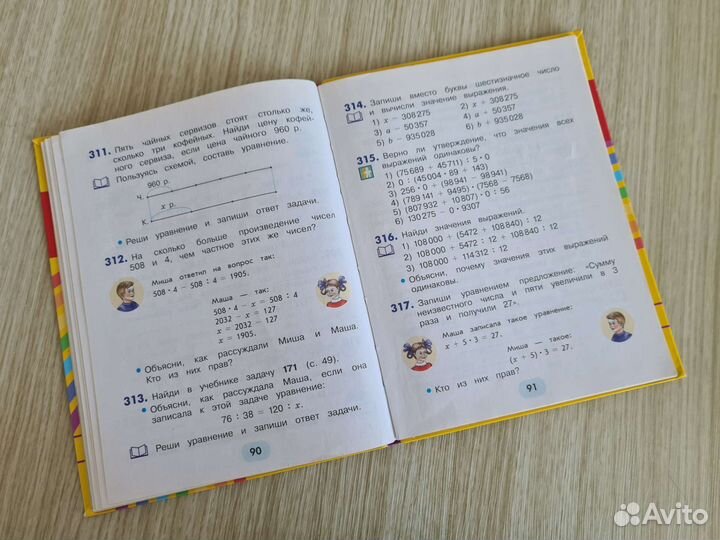 311. Пять чайных сервизов стоят столько же,
сколько три кофейных. Найди цену кофей-
ного сервиза, если цена чайного 960 р.
Пользуясь схемой, составь уравнение.
960 р.
Ч.
x р.
К.
• Реши уравнение и запиши ответ задачи.
312. На сколько больше произведение чисел
508 и 4, чем частное этих же чисел?
Миша ответил на вопрос так:
508 · 4 − 508 : 4 = 1905.
Маша — так:
508 · 4 − x = 508 : 4
2032 − x = 127
x = 2032 − 127
x = 1905.
• Объясни, как рассуждали Миша и Маша.
Кто из них прав?
313. Найди в учебнике задачу 171 (с. 49).
• Объясни, как рассуждала Маша, если она
записала к этой задаче уравнение:
76 : 38 = 120 : x.
Реши уравнение и запиши ответ задачи.
90
314. Запиши вместо буквы шестизначное число
и вычисли значение выражения.
1) x − 308 275 2) x + 308 275
3) a − 50 357 4) a + 50 357
5) b − 935 028 6) b + 935 028
315. Верно ли утверждение, что значения всех
выражений одинаковы?
1) (75 689 + 45 711) : 5 · 0
2) 0 : (45 004 · 89 + 143)
3) 256 · 0 + (98 941 − 98 941)
4) (789 141 + 9495) · (7568 − 7568)
5) (807 932 + 10 807) · 0 : 56
6) 130 275 − 0 · 9307
316. Найди значения выражений.
1) 108 000 + (5472 + 108 840) : 12
2) 108 000 + 5472 : 12 + 108 840 : 12
3) 108 000 + 114 312 : 12
• Объясни, почему значения этих выражений
одинаковы.
317. Запиши уравнением предложение: «Сумму
неизвестного числа и пяти увеличили в 3
раза и получили 27».
Маша записала такое уравнение:
x + 5 · 3 = 27.
Миша — такое:
(x + 5) · 3 = 27.
• Кто из них прав?
91
Avito